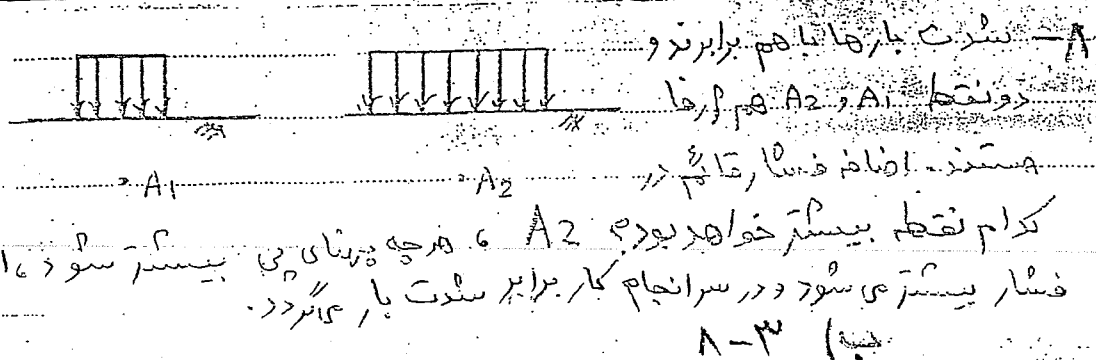 ۸- شدت بارها با هم برابرند و
دو نقطه A1 و A2 هم ژرفا
هستند. اضافه فشار قائم در
A1
A2
کدام نقطه بیشتر خواهد بود؟ A2 ، هرچه پهنای پی بیشتر شود ،
فشار بیشتر می شود و در سرانجام کار برابر شدت بار می گردد.
ب) ۳-۸